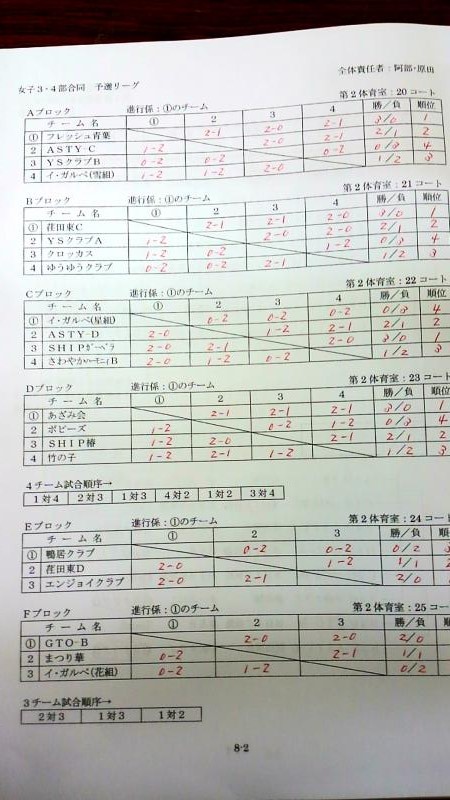 全体責任者：阿部・原田
女子3・4部合同 予選リーグ
Aブロック 進行係：①のチーム 第2体育室：20コート
チーム名 ① 2 3 4 勝/負 順位
① フレッシュ青葉 2-1 2-0 2-1 3/0 1
2 ASTY-C 1-2 2-0 2-1 2/1 2
3 YSクラブB 0-2 0-2 0-2 0/3 4
4 イ・ガルベ(雪組) 1-2 1-2 2-0 1/2 3
Bブロック 進行係：①のチーム 第2体育室：21コート
チーム名 ① 2 3 4 勝/負 順位
① 荏田東C 2-1 2-1 2-0 3/0 1
2 YSクラブA 1-2 2-0 2-0 2/1 2
3 クロッカス 1-2 0-2 1-2 0/3 4
4 ゆうゆうクラブ 0-2 0-2 2-1 1/2 3
Cブロック 進行係：①のチーム 第2体育室：22コート
チーム名 ① 2 3 4 勝/負 順位
① イ・ガルベ(星組) 0-2 0-2 0-2 0/3 4
2 ASTY-D 2-0 1-2 2-1 2/1 2
3 SHIPガーベラ 2-0 2-1 2-0 3/0 1
4 さわやかハーモニィB 2-0 1-2 0-2 1/2 3
Dブロック 進行係：①のチーム 第2体育室：23コート
チーム名 ① 2 3 4 勝/負 順位
① あざみ会 2-1 2-1 2-1 3/0 1
2 ポピーズ 1-2 0-2 1-2 0/3 4
3 SHIP椿 1-2 2-0 2-1 2/1 2
4 竹の子 1-2 2-1 1-2 1/2 3
4チーム試合順序→
1対4 2対3 1対3 4対2 1対2 3対4
Eブロック 進行係：①のチーム 第2体育室：24コート
チーム名 ① 2 3 勝/負 順位
① 鴨居クラブ 0-2 0-2 0/2
2 荏田東D 2-0 1-2 1/1
3 エンジョイクラブ 2-0 2-1 2/0
Fブロック 進行係：①のチーム 第2体育室：25コー
チーム名 ① 2 3 勝/負 順位
① GTO-B 2-0 2-0 2/0
2 まつり華 0-2 2-1 1/1
3 イ・ガルベ(花組) 0-2 1-2 0/2
3チーム試合順序→
2対3 1対3 1対2
8-2